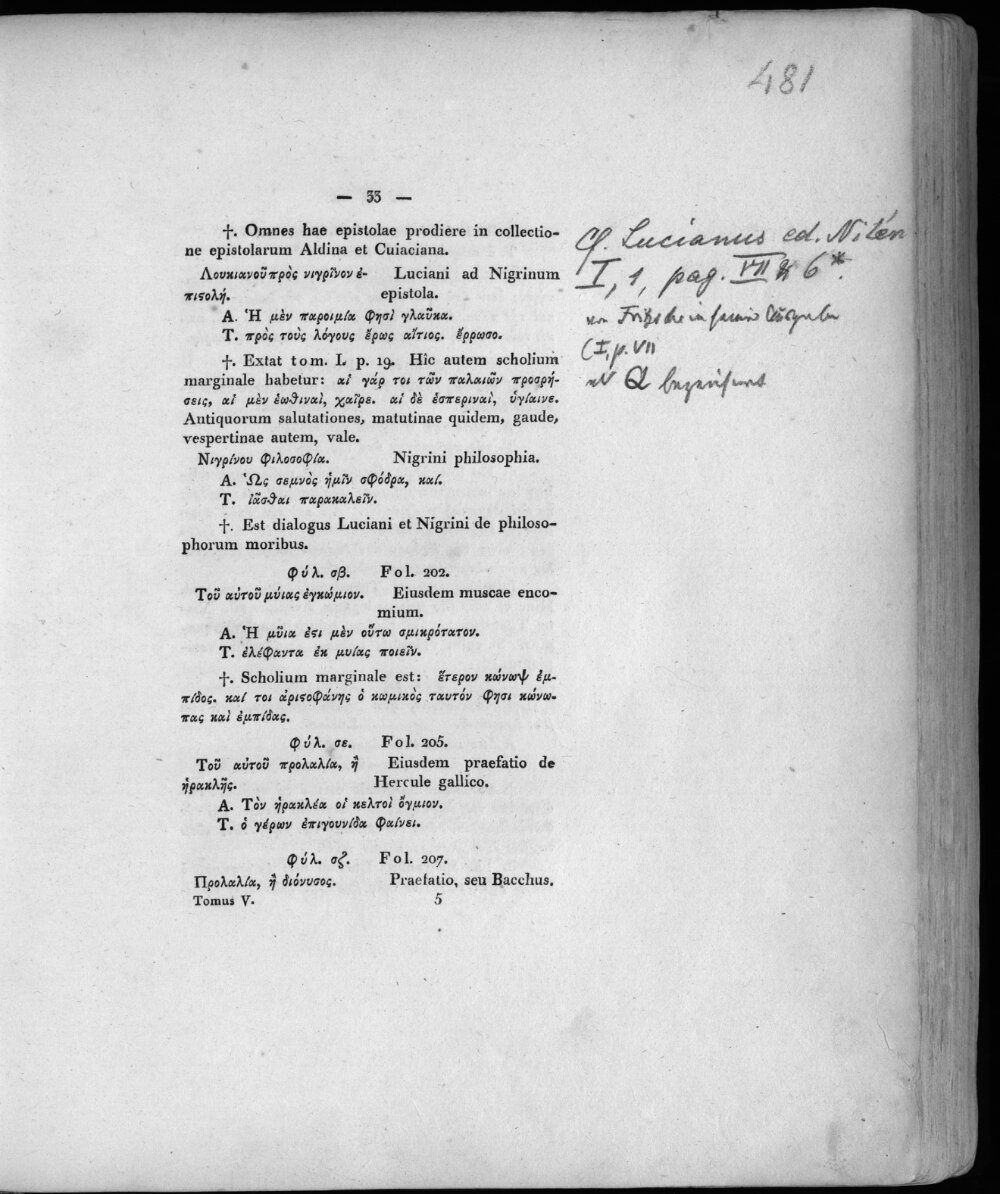 481
— 33 —
†. Omnes hae epistolae prodiere in collectio-
ne epistolarum Aldina et Cuiaciana.
Λουκιανοῦ πρὸς νιγρῖνον ἐ- Luciani ad Nigrinum
πιϛολή. epistola.
Α. Ἡ μὲν παροιμία φησὶ γλαῦκα.
Τ. πρὸς τοὺς λόγους ἔρως αἴτιος. ἔρρωσο.
†. Extat tom. I. p. 19. Hîc autem scholium
marginale habetur: αἱ γάρ τοι τῶν παλαιῶν προσρή-
σεις, αἱ μὲν ἑωθιναὶ, χαῖρε. αἱ δὲ ἑσπεριναὶ, ὑγίαινε.
Antiquorum salutationes, matutinae quidem, gaude,
vespertinae autem, vale.
Νιγρίνου φιλοσοφία. Nigrini philosophia.
Α. Ὡς σεμνὸς ἡμῖν σφόδρα, καί.
Τ. ἰᾶσθαι παρακαλεῖν.
†. Est dialogus Luciani et Nigrini de philoso-
phorum moribus.
Φύλ. σβ. Fol. 202.
Τοῦ αὐτοῦ μύιας ἐγκώμιον. Eiusdem muscae enco-
mium.
Α. Ἡ μῦια ἐϛι μὲν οὔτω σμικρότατον.
Τ. ἐλέφαντα ἐκ μυίας ποιεῖν.
†. Scholium marginale est: ἕτερον κώνωψ ἐμ-
πίδος. καί τοι ἀριϛοφάνης ὁ κωμικὸς ταυτόν φησι κώνω-
πας καὶ ἐμπίδας.
Φύλ. σε. Fol. 205.
Τοῦ αὐτοῦ προλαλία, ἢ Eiusdem praefatio de
ἡρακλῆς. Hercule gallico.
Α. Τὸν ἡρακλέα οἱ κελτοὶ ὄγμιον.
Τ. ὁ γέρων ἐπιγουνίδα φαίνει.
Φύλ. σζ. Fol. 207.
Προλαλία, ἢ διόνυσος. Praefatio, seu Bacchus.
Tomus V. 5
Cf. Lucianus ed. Nilén
I, 1, pag. VII 6*.
von Fritzsche in seiner Ausgabe
(I, p. VII
Ω bezeichnet